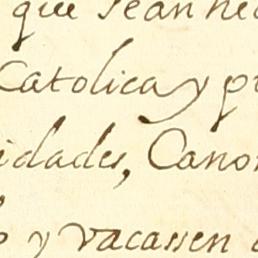 que sean hec
Catolica y pr
idades, Cano
y vacassen